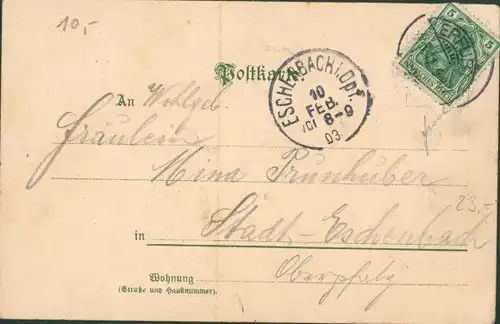 10,-
5 5
Postkarte
ESCHENBACH i. Opf.
10
FEB.
Vor 8-9
03
An Wohlgeb
Fräulein
Mina Prunhuber
25,-
in Stadt-Eschenbach
Oberpfalz
Wohnung
(Straße und Hausnummer).